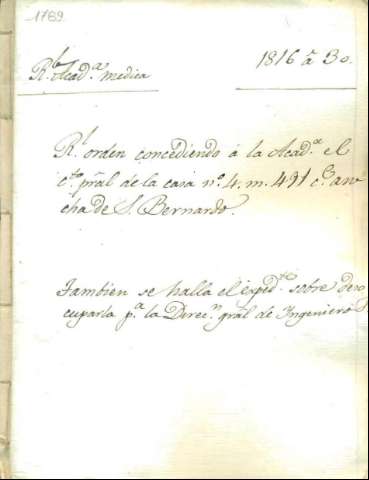 1789.
Rl. Acad.a medica
1816 á 30.
Rl. orden concediendo á la Acad.a el
c.to pral de la casa nº. 4. m. 491 c.e an
cha de S. Bernardo.
Tambien se halla el exped.te sobre deso
cuparla p.a la Direc.n gral de Ingenieros.